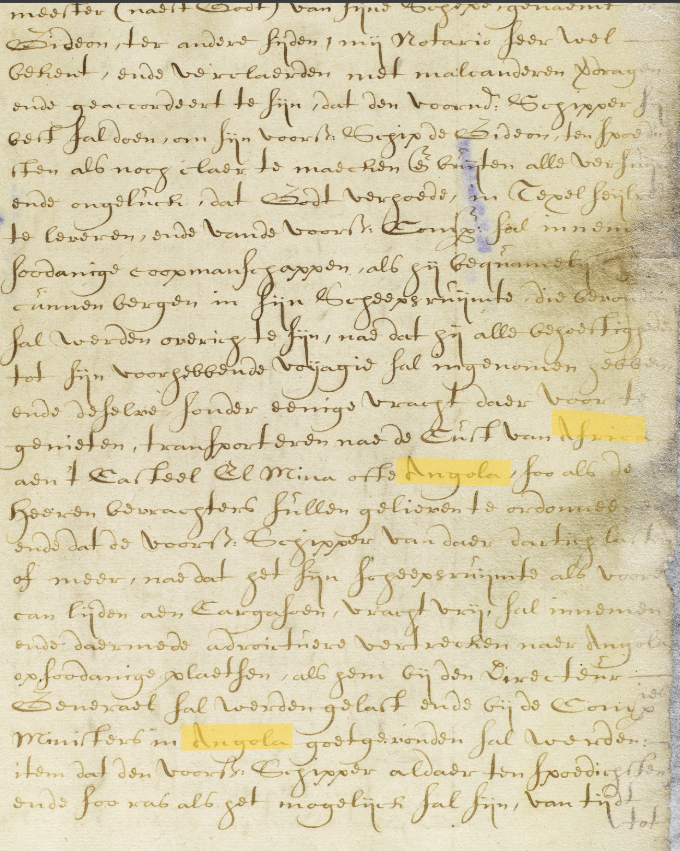 meester (naest Godt) van sijne Schepe, genaemt
Gideon, ter andere sijden, mij Notario seer wel
bekent, ende verclaerden met malcanderen
ende geaccordeert te sijn, dat den voornd: Schipper
best sal doen, om sijn voorss: Schip de Gideon, ten
sten als noch claer te maecken & buijten alle
ende ongeluck, dat Godt verhoede, in Texel
te leveren, ende vande voorss: Comp: sal innem
soodanige coopmanschappen, als hij bequamelij
cunnen bergen in sijn Scheepsruijmte, die
sal werden overich te sijn, nae dat hij alle
tot sijn voorhebbende voijagie sal ingenomen hebben
ende deselve sonder eenige vracht daer voor te
genieten, transporteren nae de Cust van Africa
aen 't Casteel El Mina ofte Angola, soo als de
Heeren bevrachters sullen gelieven te
ende dat de voorss: Schipper van daer dartich last
of meer, nae dat het sijn scheepsruijmte als
can lijden aen Cargasoen, vracht vrij, sal innemen
ende daermede adroictuere vertrecken naer Angola
op soodanige plaetsen, als hem bij den Directeur
Generael sal werden gelast ende bij de Comp:
Ministers in Angola goetgevonden sal werden:
item dat den voorss: Schipper aldaer ten spoedichsten
ende soo ras als het mogelijck sal sijn, van tijdt
tot